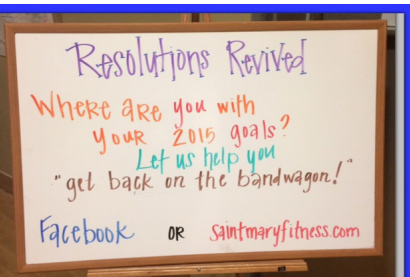 Resolutions Revived
Where are you with
your 2015 goals?
Let us help you
"get back on the bandwagon!"
Facebook OR saintmaryfitness.com